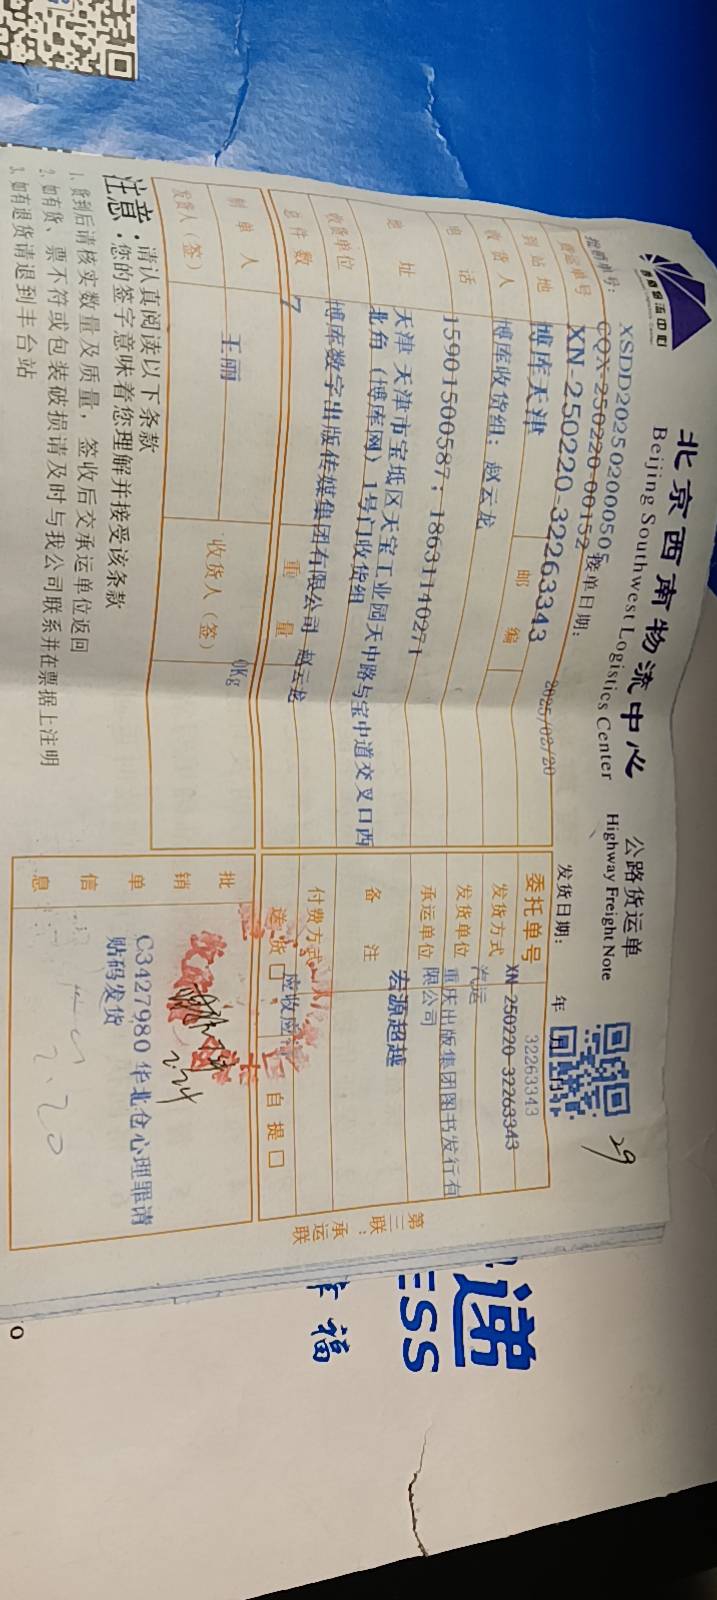 西南物流中心
北京西南物流中心
Beijing Southwest Logistics Center
公路货运单
Highway Freight Note
29
批销单号:
XSDD202502000505
CQX-250220-00152
接单日期:
2025/02/20
发货日期: 年 月 日
货运单号
XN-250220-32263343
委托单号
32263343
XN-250220-32263343
到站地
博库天津
邮编
发货方式
汽运
收货人
博库收货组：赵云龙
发货单位
重庆出版集团图书发行有
限公司
电话
15901500587；18631140271
承运单位
宏源超越
地址
天津 天津市宝坻区天宝工业园天中路与宝中道交叉口西
北角（博库网）1号门收货组
备注
收货单位
博库数字出版传媒集团有限公司 赵云龙
付费方式
应收应
总件数
7
重量
0Kg
送货 □
自提 □
制单人
王丽
收货人（签）
发货人（签）
批销单信息
C3427980 华北仓心理罪请
贴码发货
2.24
2.20
注意：
请认真阅读以下条款
您的签字意味着您理解并接受该条款
1. 货到后请核实数量及质量，签收后交承运单位返回
2. 如有货、票不符或包装破损请及时与我公司联系并在票据上注明
3. 如有退货请退到丰台站
第三联：承运联
递
ESS
幸福